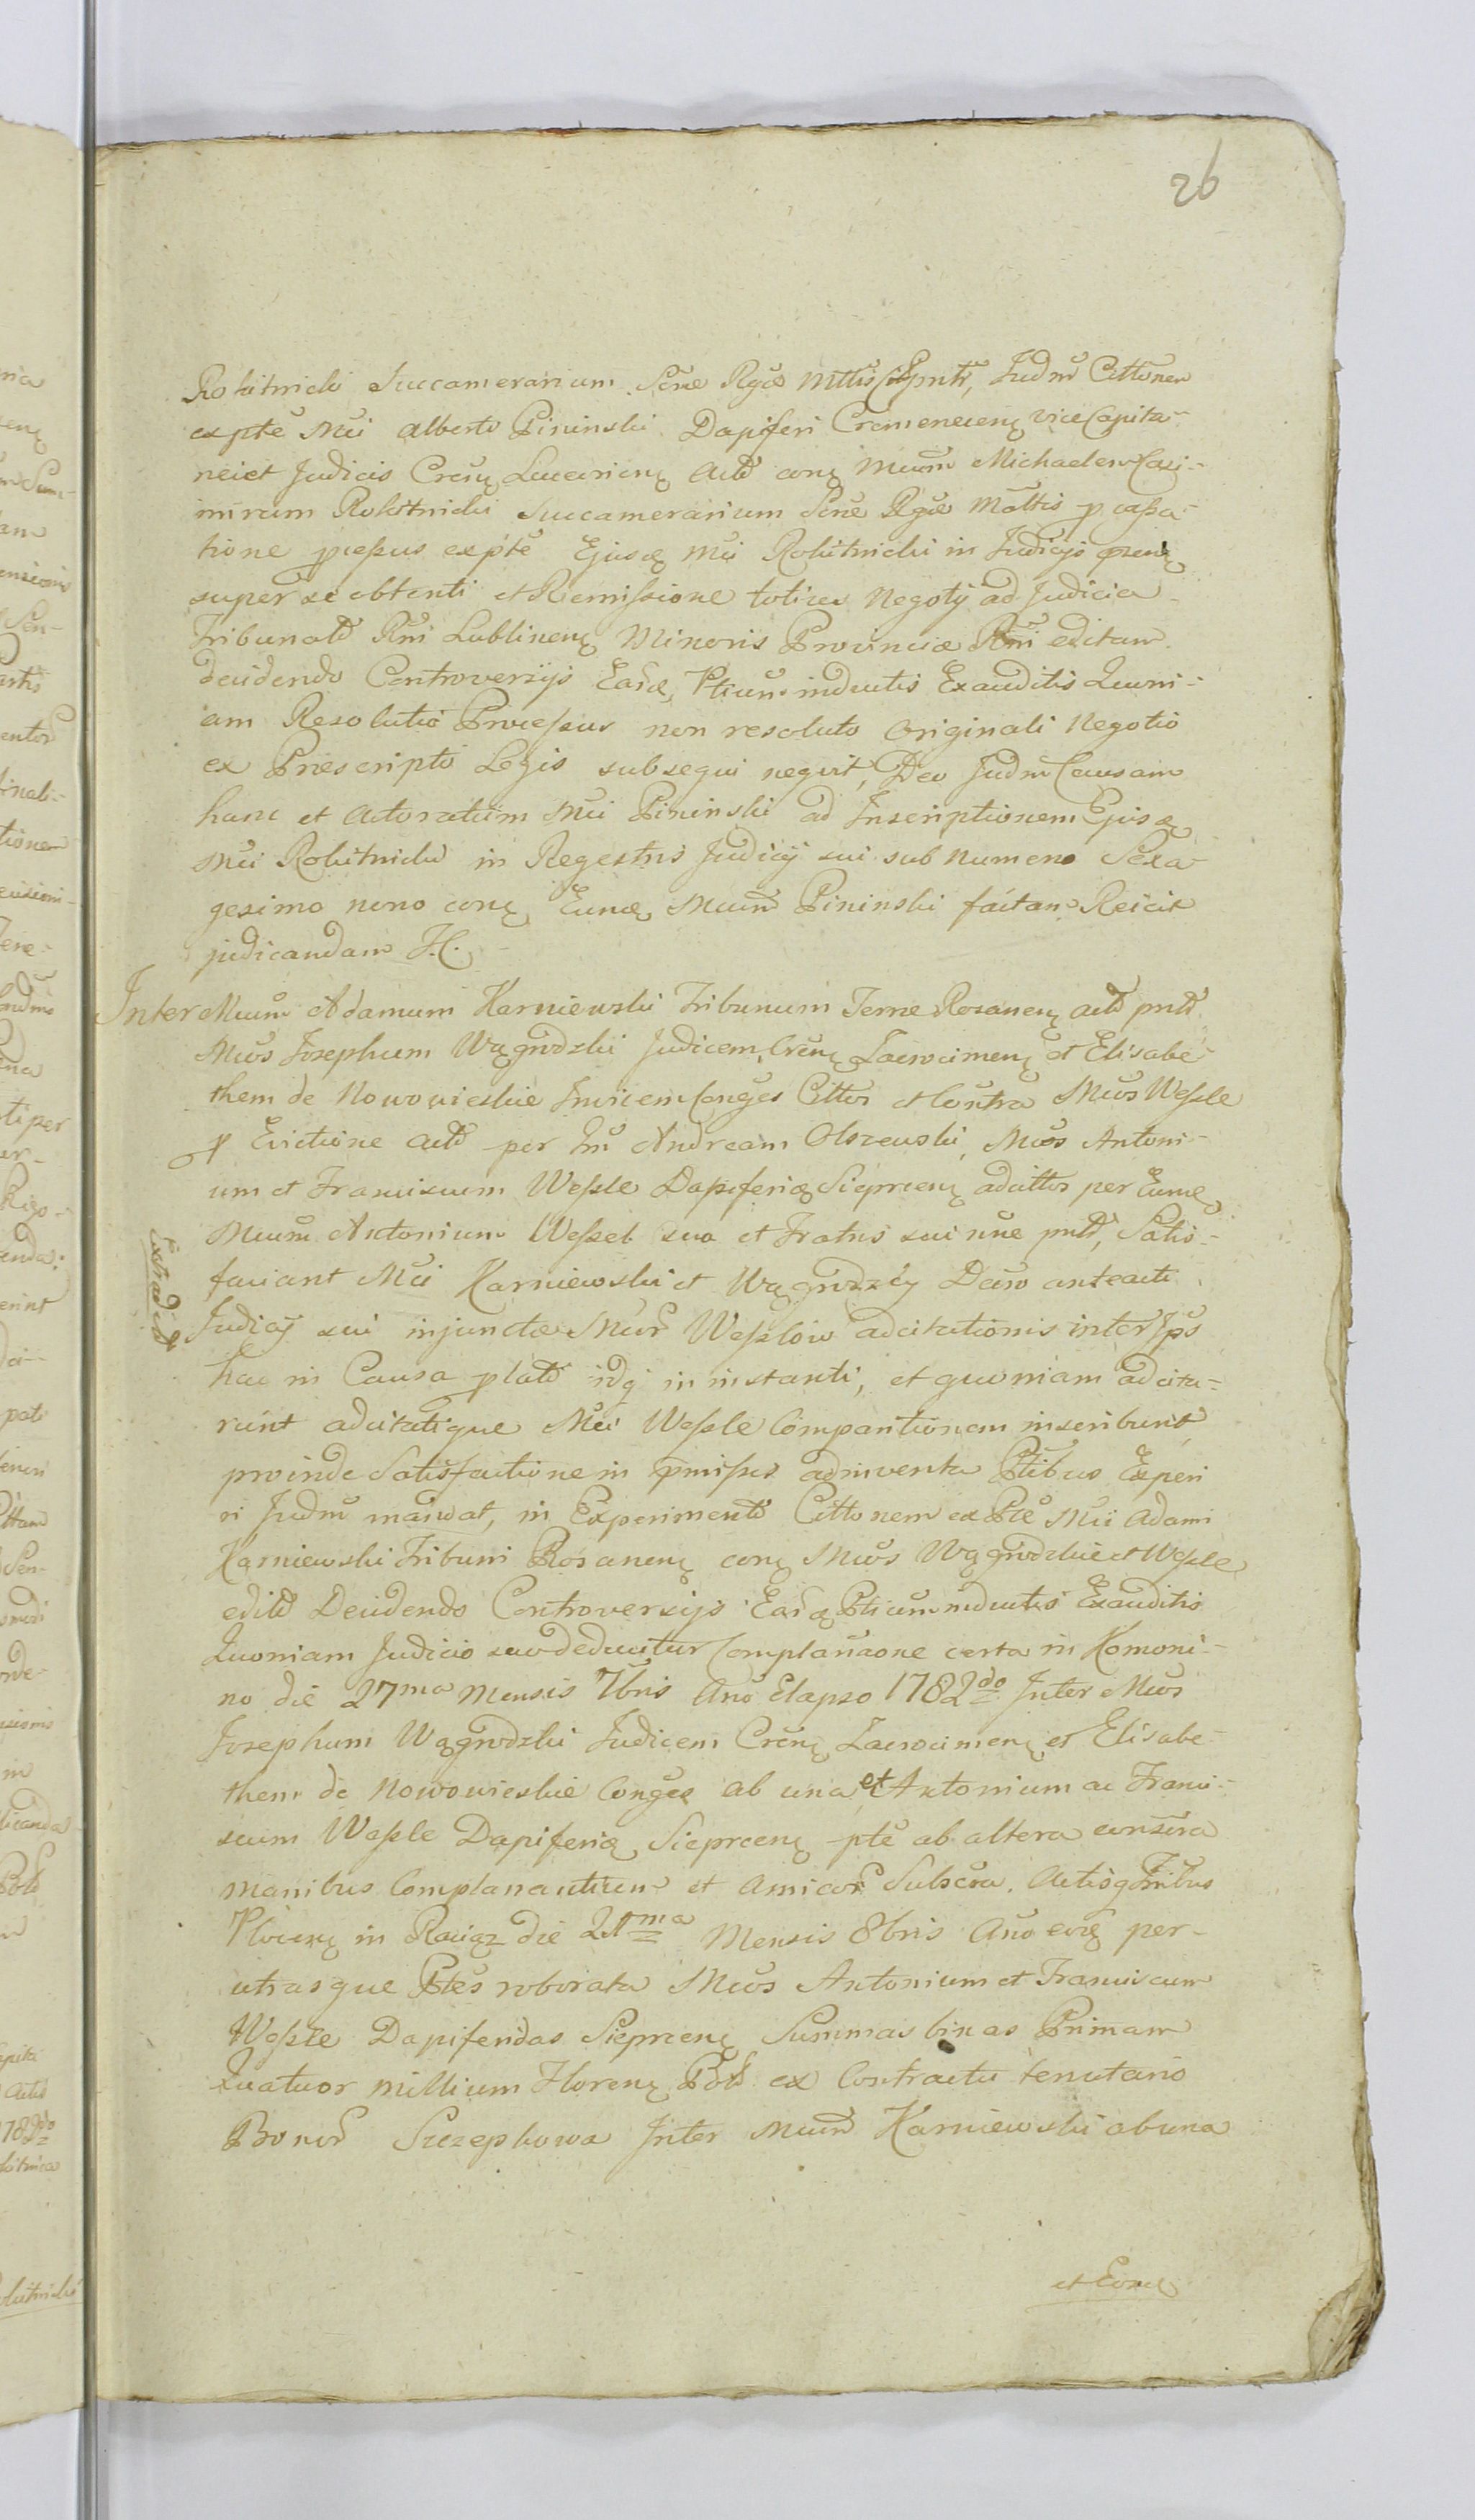 26
Rokitnicki Succamerarium Scñe Rgiæ Mttis Citt pntẽ, Judm Cittõnem
exptẽ Mci Alberti Pininski Dapiferi Cremenecenę vice Capita-
nei et Judicis Crenę Lucioriensę Actõ conę Mcum Michaelem Casi-
mirum Rokitnicki Succamerarium Scñe Rgiæ Mãttis p cassa-
tione pcessus exptẽ Ejusdę Mci Rokitnicki in Judicijs
super se obtenti et Remissione totius Negotij ad Judicia
Tribunalĩ Rñi Lublinenę Minoris Provinciæ Rñi editam
decidendo Controversijs Earę Ptium inductis Exauditis Quoni-
am Resolutio Processus non resoluto Originali Negotio
ex Præscripto Legis subsequi nequit, Deo Judm Causam
hanc et Actoratum Mci Pininski ad Inscriptionem Ejusdę
Mci Rokitnicki in Regestris Judicij sui sub Numero Sexa-
gesimo nono conę Eundę Mcum Pininski factam Reicit
judicandam H.
Inter Mcum Adamum Karniewski Tribunum Terræ Rosanenę actõ pntẽ
Mcos Josephum Wągrodzki Judicem Crenę Zacrocimenę et Elisabe-
them de Nowowieskie Invicem Conges Cittos et Contra Mcos Wessle
p Evictione actõ per Andream Olszewski, Mcos Antoni-
um et Franciscum Wessle Dapiferidas Sieprcenę adcittos per Eundę
Mcum Antonium Wessel suo et Fratris sui nñe pntẽ, Satis-
faciant Mci Karniewski et Wągrodzcy Dcõ anteacti
Extradit
Judicij sui injunctæ Mcor Wesslow adcitationis inter Ipõs
hac in Causa platõ idq in instanti, et quoniam adcita-
runt adcitatique Mci Wessle Comparitionem inscribunt
proinde Satisfactione in pmissis adinventa Ptibus Experi
ri Judm mandat, in Experimentõ Cittõnem ex Ptẽ Mci Adami
Karniewski Tribuni Rosanenę conę Mcos Wągrodzkie et Wessle
editõ Decidendo Controversijs Earę Ptium inductis Exauditis
Quoniam Judicio suo deducitur Complanãone certa in Komoni-
no die 27ma Mensis 7bris Anõ Elapso 1782do Inter Mcos
Josephum Wągrodzki Judicem Crenę Zacrocimenę et Elisabe-
them de Nowowieskie Conges ab una et Antonium ac Franci-
scum Wessle Dapiferidę Sieprcenę ptẽ ab altera conscra
manibus Complanantium et Amicor Subscra. Actisq
Plocenę in Raciąz die 21ma Mensis 8bris Anõ eodę per
utrasque Ptẽs roborata Mcos Antonium et Franciscum
Wessle Dapiferidas Sieprcenę Summas binas Primam
Quatuor millium Florenę Põlõ ex Contractu tenutario
Bonor Szczepkowa Inter Mcum Karniewski ab una
et Eosdę